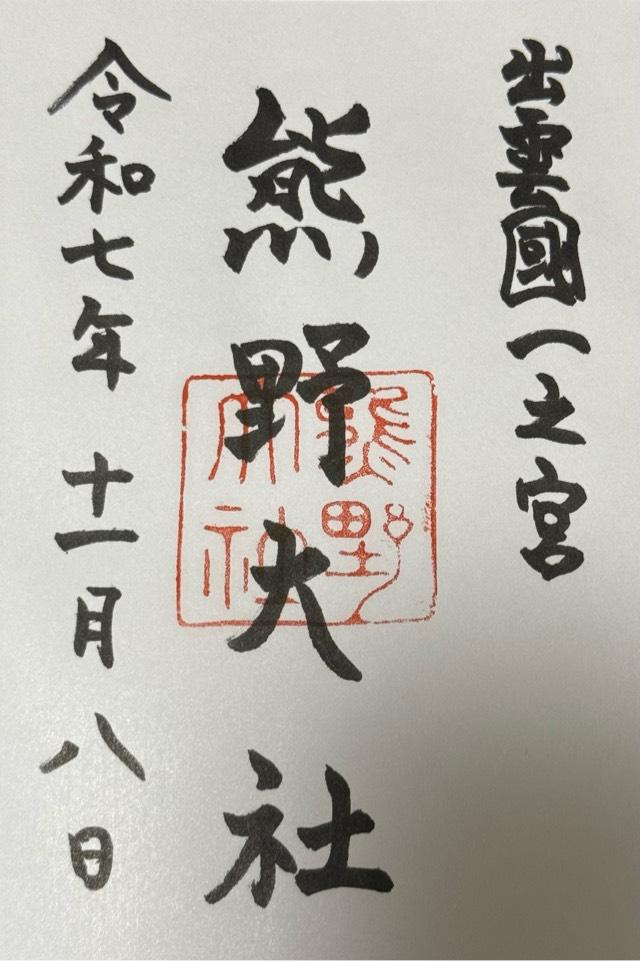 出雲國一之宮
熊野大社
熊野大社
令和七年十一月八日